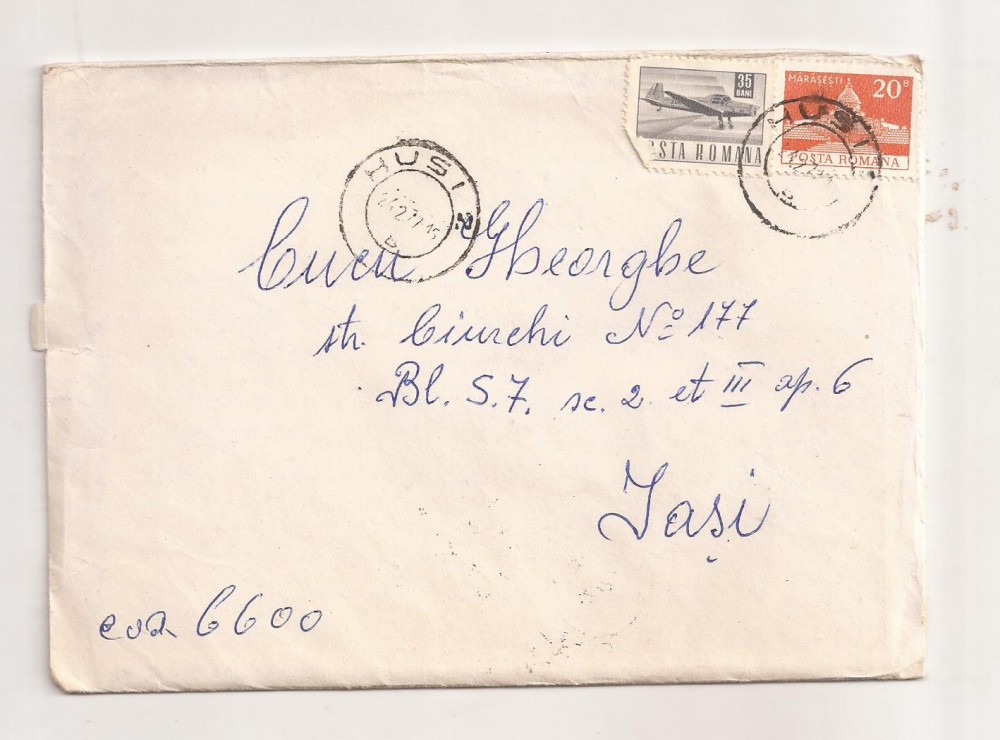 35
BANI
POSTA ROMANA
MĂRĂȘEȘTI
20 B
POSTA ROMANA
HUSI
HUSI
Cucu Gheorghe
str. Ciurchi No 177
Bl. S.7. sc. 2 et III ap. 6
Iași
cod 6600